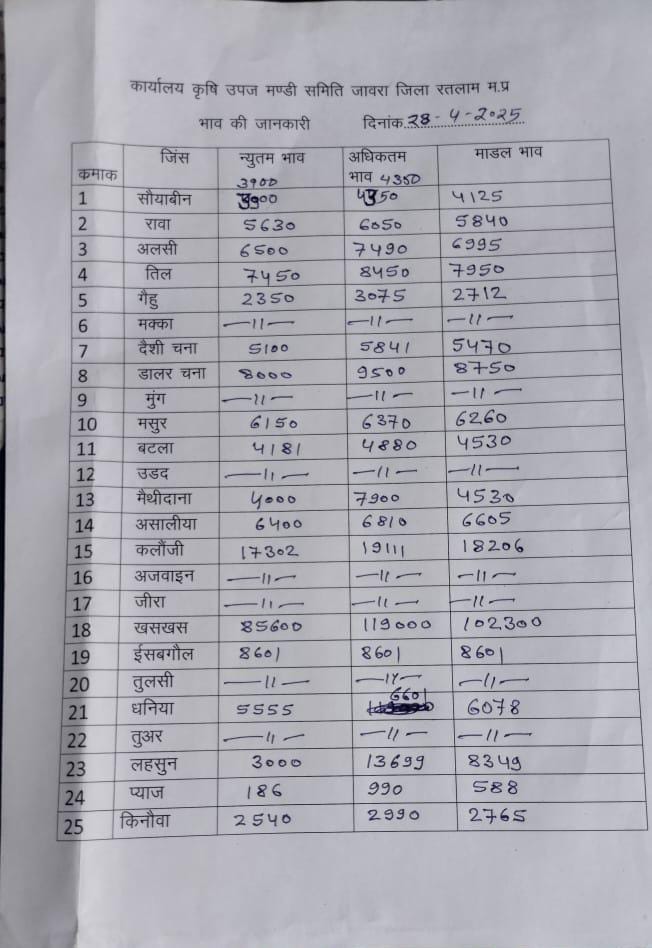 कार्यालय कृषि उपज मण्डी समिति जावरा जिला रतलाम म.प्र
भाव की जानकारी दिनांक 28-4-2025
कमाक जिंस न्युतम भाव अधिकतम भाव माडल भाव
1 सौयाबीन 3900 4350 4125
2 रावा 5630 6050 5840
3 अलसी 6500 7490 6995
4 तिल 7450 8450 7950
5 गैहु 2350 3075 2712
6 मक्का —11— —11— —11—
7 दैशी चना 5100 5841 5470
8 डालर चना 8000 9500 8750
9 मुंग —11— —11— —11—
10 मसुर 6150 6370 6260
11 बटला 4181 4880 4530
12 उडद —11— —11— —11—
13 मैथीदाना 4000 7900 4530
14 असालीया 6400 6810 6605
15 कलौंजी 17302 19111 18206
16 अजवाइन —11— —11— —11—
17 जीरा —11— —11— —11—
18 खसखस 85600 119000 102300
19 ईसबगौल 8601 8601 8601
20 तुलसी —11— —11— —11—
21 धनिया 5555 6601 6078
22 तुअर —11— —11— —11—
23 लहसुन 3000 13699 8349
24 प्याज 186 990 588
25 किनौवा 2540 2990 2765